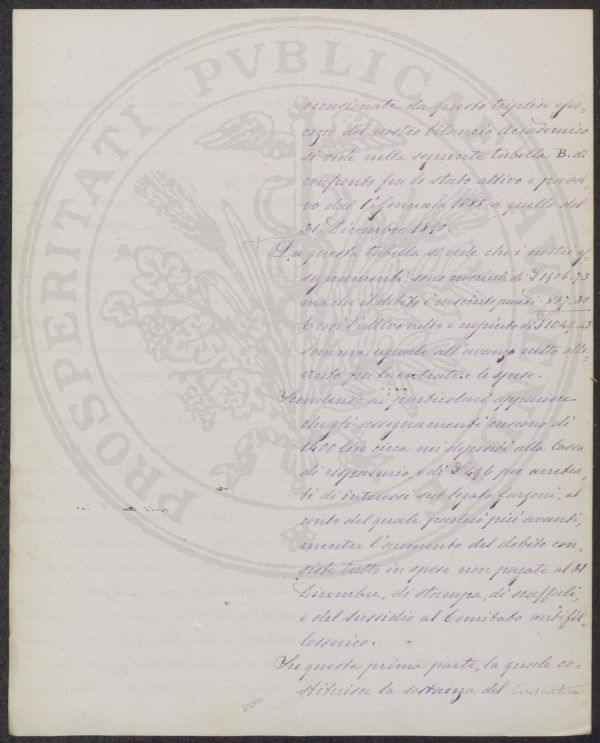 PROSPERITATI PVBLICAE AVGENDAE
occasionate da questo triplice eser-
cizio del nostro bilancio Accademico
si vede nella seguente tabella B. di
confronto fra lo stato attivo e passi-
vo dal 1° Gennaio 1888 a quello del
31 Dicembre 1890.
Da questa tabella si vede che i nostri as-
segnamenti sono cresciuti di £ 1906.73
ma che il debito è cresciuto quasi 857.30
E così l'attivo netto è aumentato di £ 1049.43
somma uguale all'avanzo netto otte-
nuto fra le entrate e le spese.
Scendendo ai particolari apparisce
che gli assegnamenti crescono di
1400 lire circa nei depositi alla Cassa
di risparmio, e di £ 496 per arretra-
ti di interessi sul legato Garzoni, al
conto del quale parlerò più avanti,
mentre l'aumento del debito con-
siste tutto in spese non pagate al 31
Dicembre, di stampa, di scaffali,
e del sussidio al Comitato antifil-
losserico.
In questa prima parte, la quale co-
stituisce la sostanza del Consuntivo